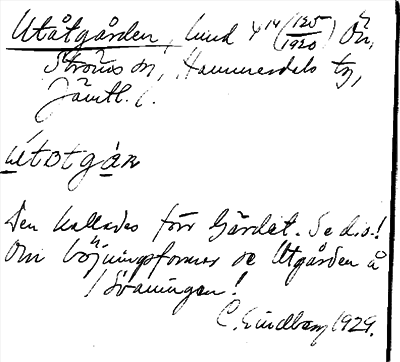 Utåtgården, hmd 4¹⁴ (125/1920) Ön,
Ströms sn, Hammerdals tg,
Jämtl. l.
útotgán
Den kallades förr Gärdet. Se d.o.!
Om böjningsformer se Utgården å
/ Svaningen!
C. Lindberg 1929.